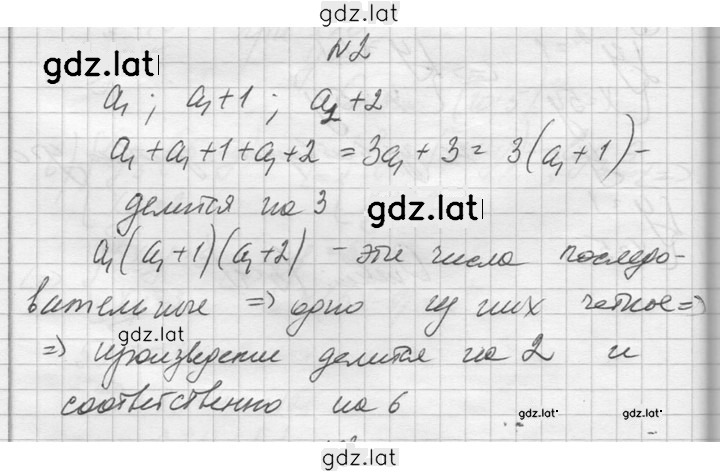 gdz.lat
N2
gdz.lat
a₁; a₁+1; a₂+2
a₁+a₁+1+a₁+2 = 3a₁+3 = 3(a₁+1) -
делится на 3
gdz.lat
a₁(a₁+1)(a₁+2) - эти числа последо-
вательные => одно из них четное =>
gdz.lat
=> произведение делится на 2 и
соответственно на 6
gdz.lat
gdz.lat
gdz.lat